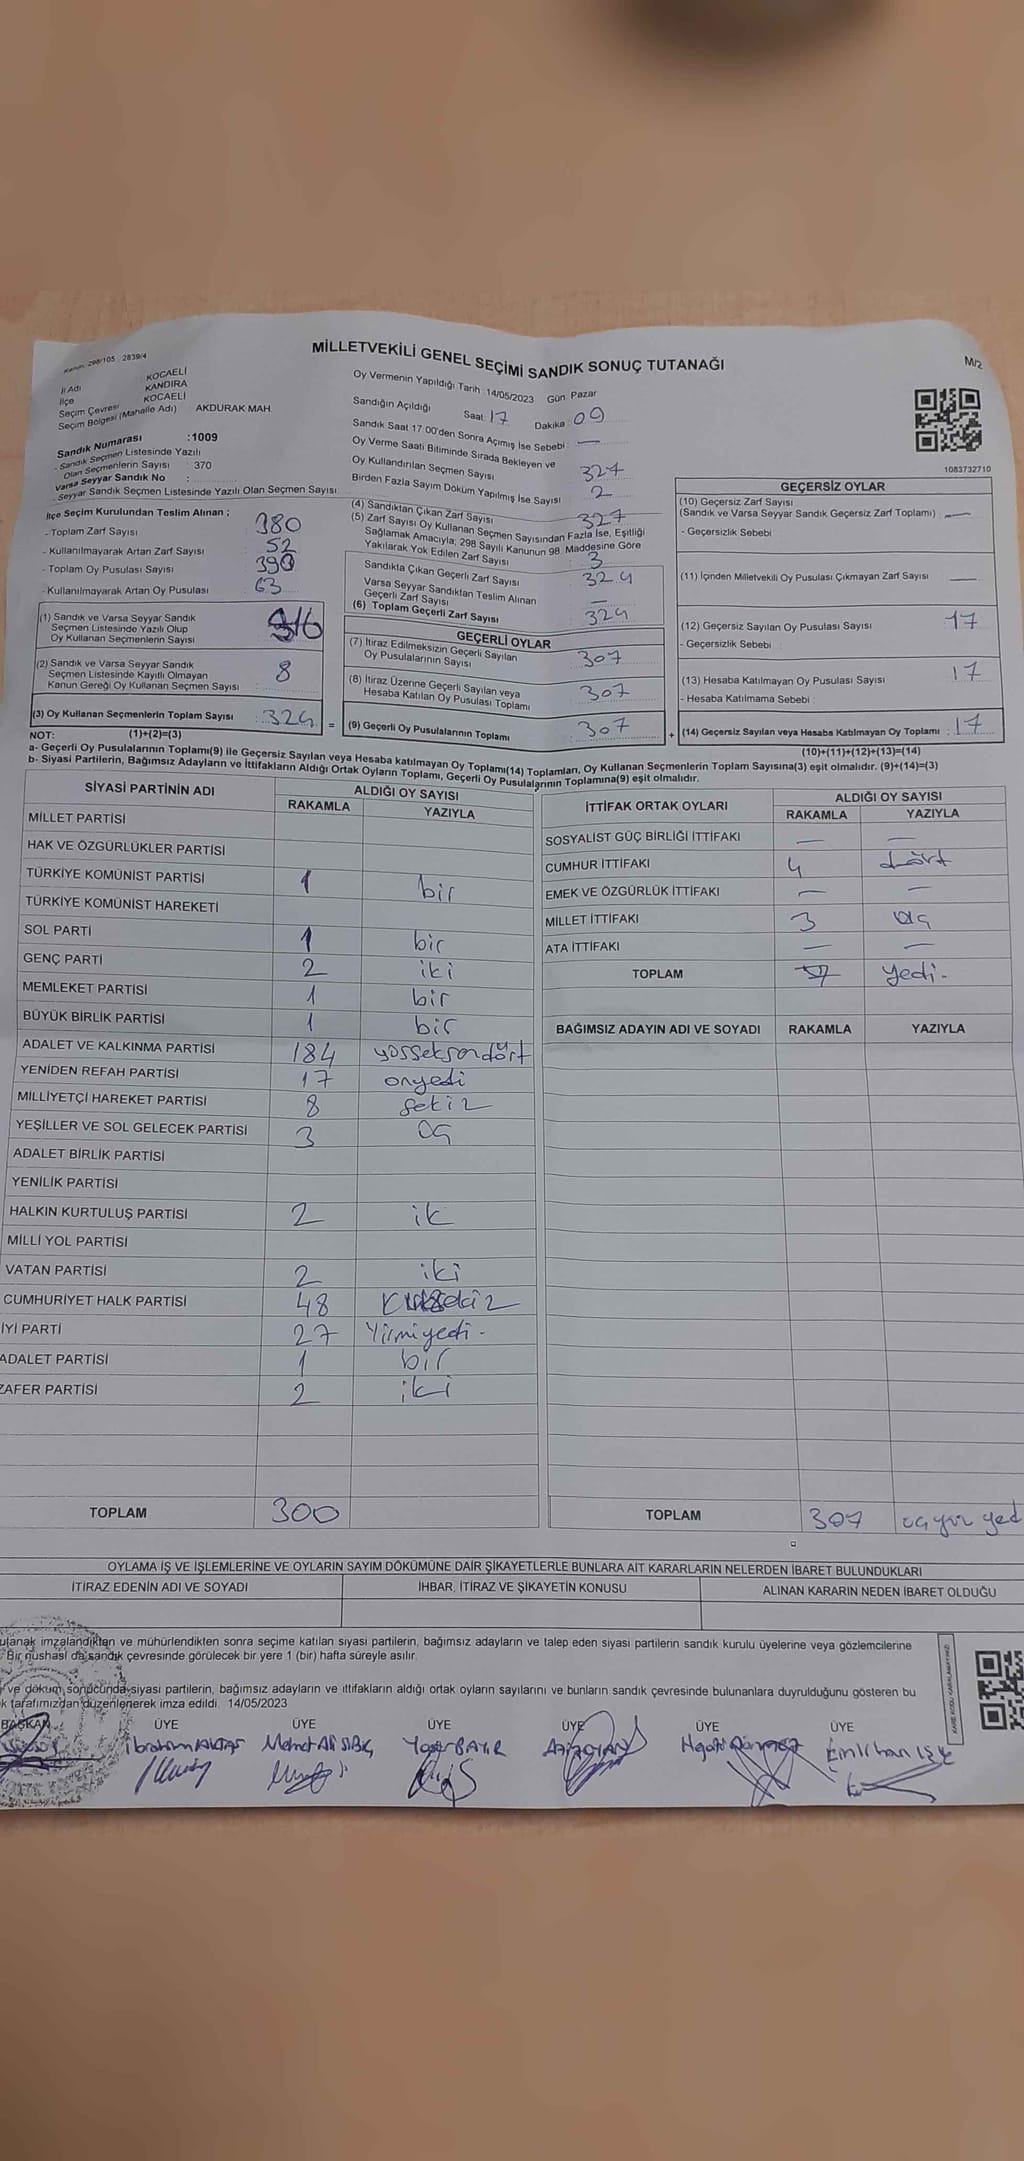 Kanun: 298/105 2839/4
MİLLETVEKİLİ GENEL SEÇİMİ SANDIK SONUÇ TUTANAĞI
M/2
İl Adı KOCAELİ
İlçe KANDIRA
Seçim Çevresi KOCAELİ
Seçim Bölgesi (Mahalle Adı) : AKDURAK MAH
Sandık Numarası :1009
- Sandık Seçmen Listesinde Yazılı
Olan Seçmenlerin Sayısı : 370
Varsa Seyyar Sandık No :
- Seyyar Sandık Seçmen Listesinde Yazılı Olan Seçmen Sayısı :
İlçe Seçim Kurulundan Teslim Alınan ;
- Toplam Zarf Sayısı : 380
- Kullanılmayarak Artan Zarf Sayısı : 52
- Toplam Oy Pusulası Sayısı : 390
- Kullanılmayarak Artan Oy Pusulası : 63
(1) Sandık ve Varsa Seyyar Sandık
Seçmen Listesinde Yazılı Olup
Oy Kullanan Seçmenlerin Sayısı : 316
(2) Sandık ve Varsa Seyyar Sandık
Seçmen Listesinde Kayıtlı Olmayan
Kanun Gereği Oy Kullanan Seçmen Sayısı : 8
(3) Oy Kullanan Seçmenlerin Toplam Sayısı : 324 =
Oy Vermenin Yapıldığı Tarih : 14/05/2023 Gün: Pazar
Sandığın Açıldığı Saat: 17 Dakika: 09
Sandık Saat 17:00'den Sonra Açılmış İse Sebebi : —
Oy Verme Saati Bitiminde Sırada Bekleyen ve
Oy Kullandırılan Seçmen Sayısı 327
Birden Fazla Sayım Döküm Yapılmış İse Sayısı 2
(4) Sandıktan Çıkan Zarf Sayısı : 327
(5) Zarf Sayısı Oy Kullanan Seçmen Sayısından Fazla İse, Eşitliği
Sağlamak Amacıyla; 298 Sayılı Kanunun 98. Maddesine Göre
Yakılarak Yok Edilen Zarf Sayısı : 3
Sandıkta Çıkan Geçerli Zarf Sayısı : 324
Varsa Seyyar Sandıktan Teslim Alınan
Geçerli Zarf Sayısı : —
(6) Toplam Geçerli Zarf Sayısı : 324
GEÇERLİ OYLAR
(7) İtiraz Edilmeksizin Geçerli Sayılan
Oy Pusulalarının Sayısı : 307
(8) İtiraz Üzerine Geçerli Sayılan veya
Hesaba Katılan Oy Pusulası Toplamı : 307
(9) Geçerli Oy Pusulalarının Toplamı : 307 +
1083732710
GEÇERSİZ OYLAR
(10) Geçersiz Zarf Sayısı
(Sandık ve Varsa Seyyar Sandık Geçersiz Zarf Toplamı) : —
- Geçersizlik Sebebi :
(11) İçinden Milletvekili Oy Pusulası Çıkmayan Zarf Sayısı : —
(12) Geçersiz Sayılan Oy Pusulası Sayısı : 17
- Geçersizlik Sebebi :
(13) Hesaba Katılmayan Oy Pusulası Sayısı : 17
- Hesaba Katılmama Sebebi :
(14) Geçersiz Sayılan veya Hesaba Katılmayan Oy Toplamı : 17
NOT: (1)+(2)=(3)
(10)+(11)+(12)+(13)=(14)
a- Geçerli Oy Pusulalarının Toplamı(9) ile Geçersiz Sayılan veya Hesaba katılmayan Oy Toplamı(14) Toplamları, Oy Kullanan Seçmenlerin Toplam Sayısına(3) eşit olmalıdır. (9)+(14)=(3)
b- Siyasi Partilerin, Bağımsız Adayların ve İttifakların Aldığı Ortak Oyların Toplamı, Geçerli Oy Pusulalarının Toplamına(9) eşit olmalıdır.
SİYASİ PARTİNİN ADI ALDIĞI OY SAYISI
RAKAMLA YAZIYLA
MİLLET PARTİSİ
HAK VE ÖZGÜRLÜKLER PARTİSİ
TÜRKİYE KOMÜNİST PARTİSİ 1 bir
TÜRKİYE KOMÜNİST HAREKETİ
SOL PARTİ 1 bir
GENÇ PARTİ 2 iki
MEMLEKET PARTİSİ 1 bir
BÜYÜK BİRLİK PARTİSİ 1 bir
ADALET VE KALKINMA PARTİSİ 184 yüzseksendört
YENİDEN REFAH PARTİSİ 17 onyedi
MİLLİYETÇİ HAREKET PARTİSİ 8 sekiz
YEŞİLLER VE SOL GELECEK PARTİSİ 3 üç
ADALET BİRLİK PARTİSİ
YENİLİK PARTİSİ
HALKIN KURTULUŞ PARTİSİ 2 ik
MİLLİ YOL PARTİSİ
VATAN PARTİSİ 2 iki
CUMHURİYET HALK PARTİSİ 48 Kırksekiz
İYİ PARTİ 27 Yirmiyedi -
ADALET PARTİSİ 1 bir
ZAFER PARTİSİ 2 iki
TOPLAM 300
İTTİFAK ORTAK OYLARI ALDIĞI OY SAYISI
RAKAMLA YAZIYLA
SOSYALİST GÜÇ BİRLİĞİ İTTİFAKI — —
CUMHUR İTTİFAKI 4 dört
EMEK VE ÖZGÜRLÜK İTTİFAKI — —
MİLLET İTTİFAKI 3 üç
ATA İTTİFAKI — —
TOPLAM 7 yedi -
BAĞIMSIZ ADAYIN ADI VE SOYADI RAKAMLA YAZIYLA
TOPLAM 307 üçyüz yed
OYLAMA İŞ VE İŞLEMLERİNE VE OYLARIN SAYIM DÖKÜMÜNE DAİR ŞİKAYETLERLE BUNLARA AİT KARARLARIN NELERDEN İBARET BULUNDUKLARI
İTİRAZ EDENİN ADI VE SOYADI İHBAR, İTİRAZ VE ŞİKAYETİN KONUSU ALINAN KARARIN NEDEN İBARET OLDUĞU
utanak imzalandıktan ve mühürlendikten sonra seçime katılan siyasi partilerin, bağımsız adayların ve talep eden siyasi partilerin sandık kurulu üyelerine veya gözlemcilerine
Bir nüshası da sandık çevresinde görülecek bir yere 1 (bir) hafta süreyle asılır.
ve döküm sonucunda siyasi partilerin, bağımsız adayların ve ittifakların aldığı ortak oyların sayılarını ve bunların sandık çevresinde bulunanlara duyrulduğunu gösteren bu
k tarafımızdan düzenlenerek imza edildi. 14/05/2023
BAŞKAN ÜYE ÜYE ÜYE ÜYE ÜYE ÜYE
İbrahim AKTAŞ Mehmet Ali Yaşar BAYIR